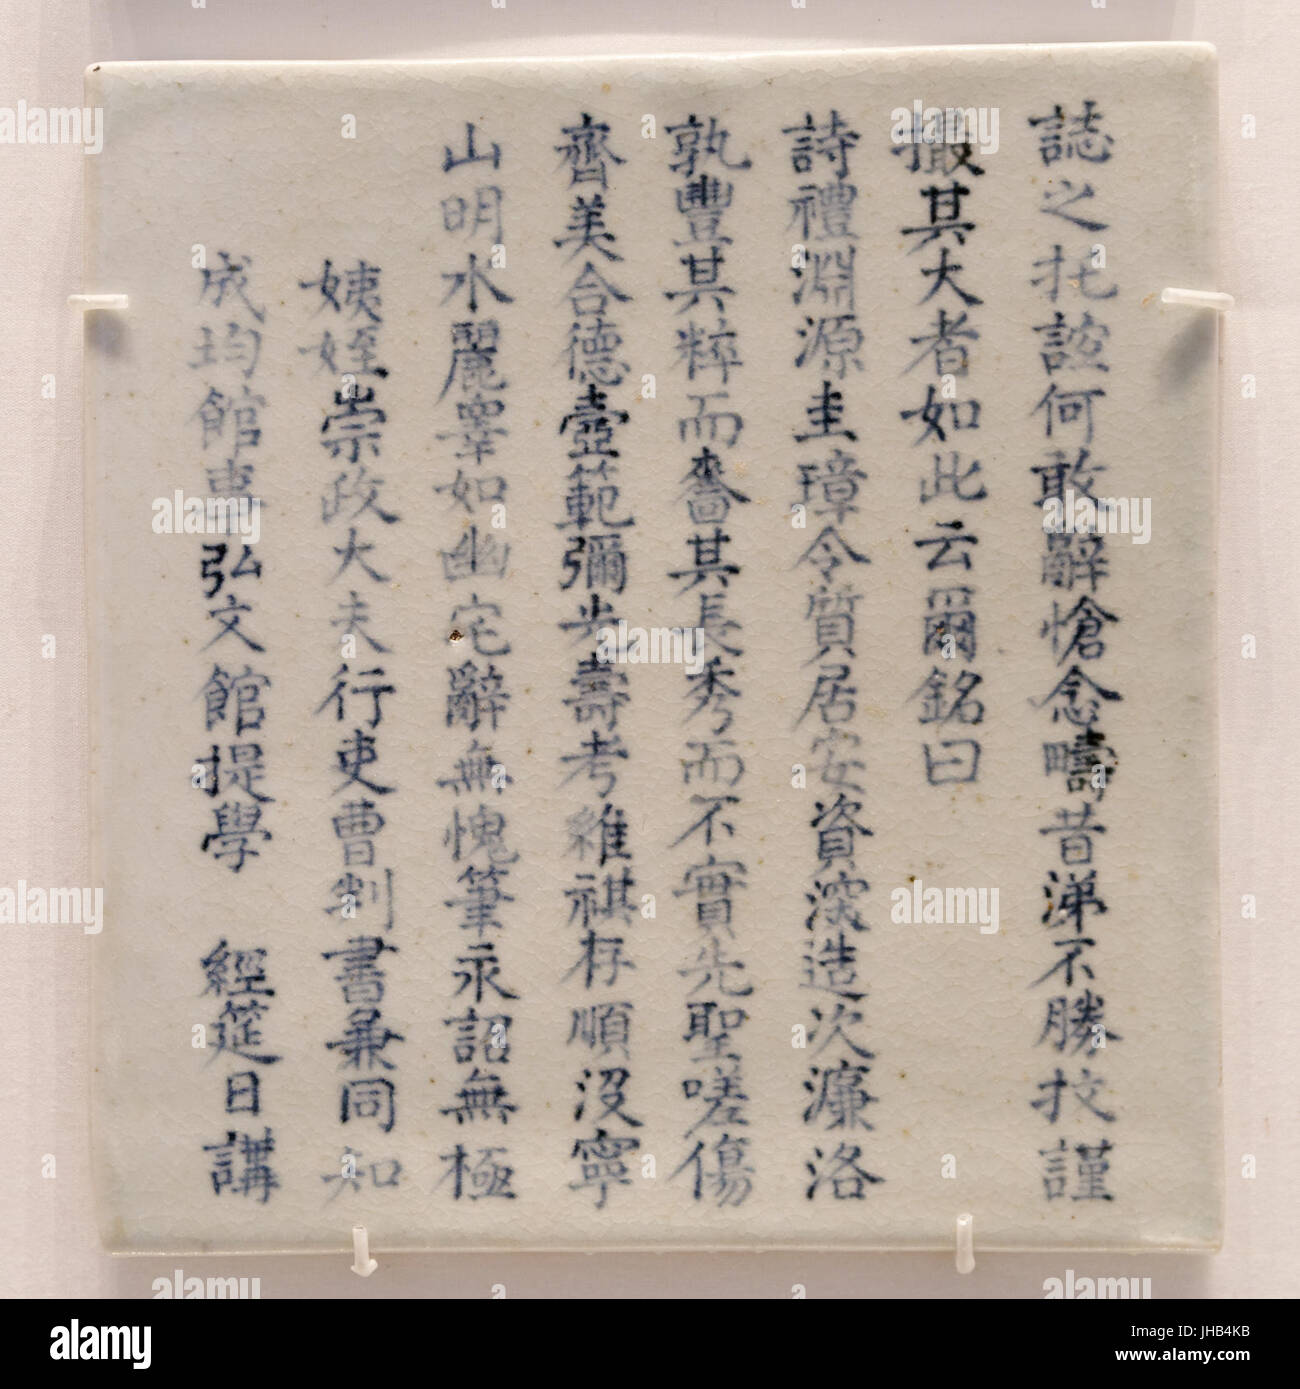 誌之托誼何敢辭愴念疇昔涕不勝抆謹
撮其大者如此云爾銘曰
詩禮淵源圭璋令質居安資深造次濂洛
孰豐其粹而嗇其長秀而不實先聖嗟傷
齊美合德壼範彌光壽考維祺存順沒寧
山明水麗睪如幽宅辭無愧筆永詔無極
姨姪崇政大夫行吏曹判書兼同知
成均館事弘文館提學 經筵日講
alamy stock photo
JHB4KB
www.alamy.com